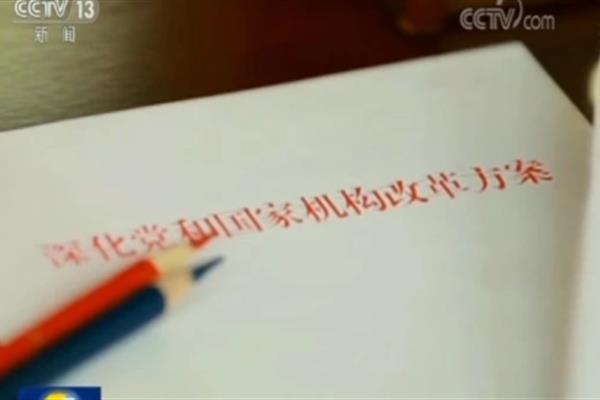 CCTV 13
新闻
CCTV.com
深化党和国家机构改革方案